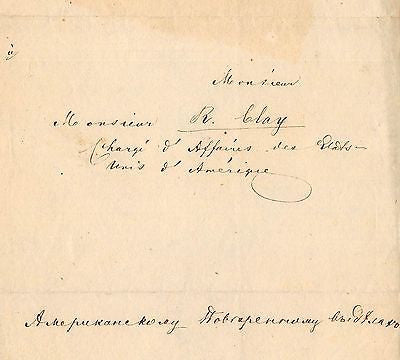 à
Monsieur
Monsieur R. Clay
Chargé d'Affaires des Etats-
Unis d'Amérique
Американскому Повѣренному въ дѣлахъ